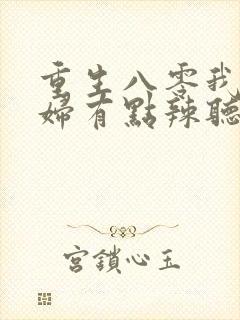 重生八零我
婦有點辣聽
宮鎖心玉